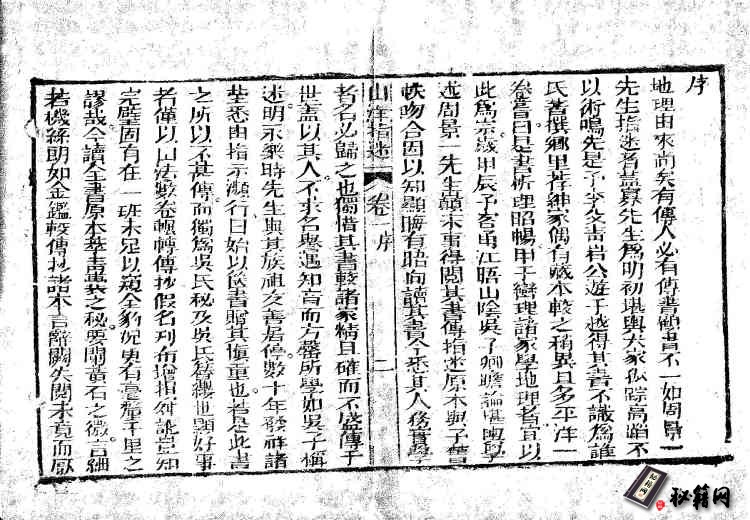 序
地理由來尚矣有傳人必有傳書顧書不一如周景一
先生指迷者蓋寡先生為明初堪輿大家似踪高蹈不
以術鳴先是予李父青岩公遊于越得其書不識為誰
氏書撰鄉里薦紳家偶有藏本較之稍異且多平洋一
卷嘗曰是書析理昭暢甲于巒理諸家學地理者宜以
此為宗歲甲辰予客甬江晤山陰吳子卿瞻論堪輿學
述周景一先生顛末事得閱其書傳指迷原本與予舊
帙吻合因以知顯晦有時向讀其書今悉其人後實學
山洋指迷 卷一序 二
者名必歸之也獨惜其書較諸家精且確而不
世蓋以其人不求名譽遇知音而方罄所學如吳子稱
述明示樂時先生與其族祖交善居停數十年發祥諸
塋悉由指示瀕行日始以篋書贈其慎重也若是此書
之所以不甚傳而獨為吳氏秘及吳氏替纓世顯好事
者僅以口法數卷輾轉傳抄假名列布遞相舛訛豈知
完璧固有在一班未足以窺全豹況更有毫釐千里之
謬哉今讀全書原本發青囊之秘要闡黃石之微言細
若機絲朗如金鑑較傳抄諸本言辭闕失閱未竟而厭
秘籍网